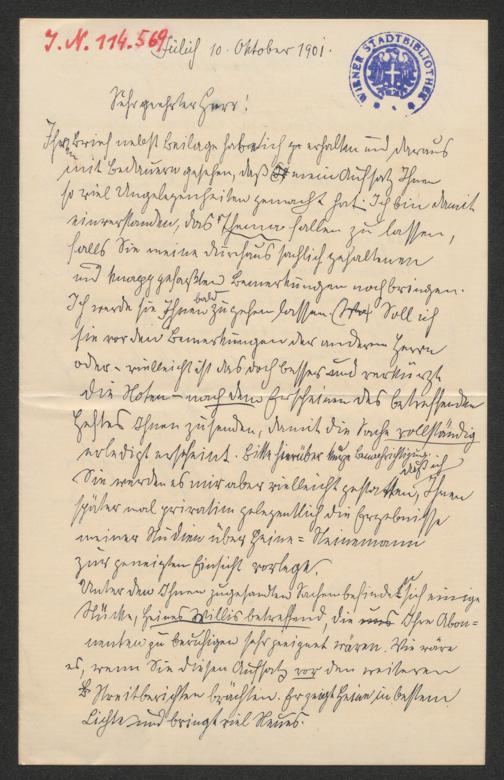 J. N. 114.569
Jülich 10. Oktober 1901.
WIENER STADTBIBLIOTHEK
Sehr geehrter Herr!
Ihren Brief nebst Beilage habe ich erhalten und daraus
mit Bedauern gesehen, daß mein Aufsatz Ihnen
so viel Ungelegenheiten gemacht hat. Ich bin damit
einverstanden, das Thema fallen zu lassen,
falls Sie meine durchaus sachlich gehaltenen
und knapp gefaßten Bemerkungen noch bringen.
Ich werde sie Ihnen bald zugehen lassen. Soll ich
sie vor den Bemerkungen der anderen Herrn
oder – vielleicht ist das doch besser und verkürzte
die Noten – nach dem Erscheinen des betreffenden
Heftes Ihnen zusenden, damit die Sache vollständig
erledigt erscheint. Bitte hierüber kurze Benachrichtigung.
Sie werden es mir aber vielleicht gestatten, daß ich Ihnen
später mal privatim gelegentlich die Ergebnisse
meiner Studien über Heine-Steinemann
zur geneigten Einsicht vorlege.
Unter den Ihnen zugesandten Sachen befindet sich einige
Stücke, Heines Willis betreffend, die uns Ihre Abon-
nenten zu beruhigen sehr geeignet wären. Wie wäre
es, wenn Sie diesen Aufsatz vor den weiteren
Streitberichten brächten. Er zeigt Heine in bestem
Lichte und bringt viel Neues.